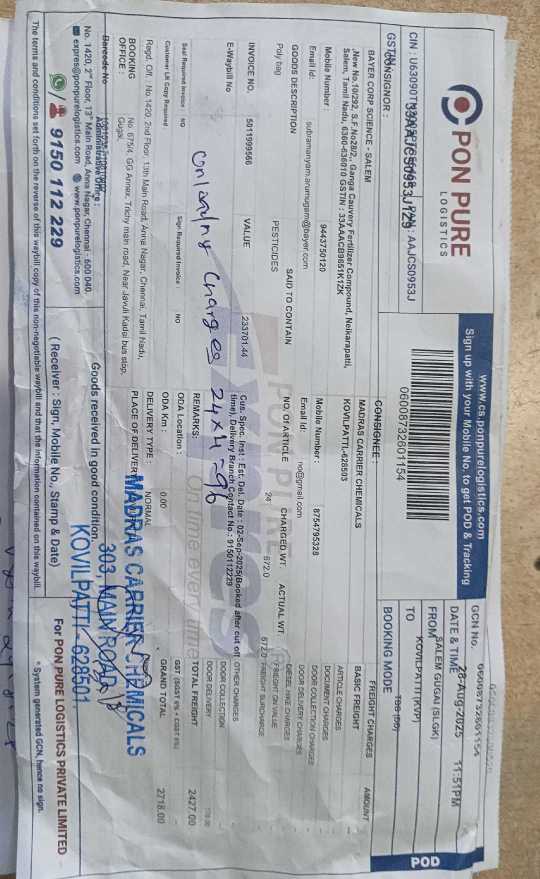 PON PURE
LOGISTICS
www.cs.ponpurelogistics.com
Sign up with your Mobile No. to get POD & Tracking
POD
GCN No.
06008732601154
DATE & TIME 28-Aug-2025 11:51PM
FROM SALEM GUGAI (SLGK)
TO KOVILPATTI (KVP)
BOOKING MODE
06008732601154
GSTIN
33AAJCS0953J1Z9
PAN: AAJCS0953J
CONSIGNOR :
BAYER CORP SCIENCE - SALEM
,New No.10/292, S.F.No28/2, Ganga Cauvery Fertilizer Compound, Neikarapatti,
Salem, Tamil Nadu, 6360-636010 GSTIN : 33AAACB9651K1ZK
Mobile Number : 9443750120
Email Id: subramanyam.arumugam@bayer.com
CONSIGNEE :
MADRAS CARRIER CHEMICALS
KOVILPATTI-628503
Mobile Number : 8754795328
Email Id: no@gmail.com
GOODS DESCRIPTION SAID TO CONTAIN NO. Of ARTICLE CHARGED WT. ACTUAL WT.
Poly bag PESTICIDES 24 672.0 672.0
INVOICE NO. 5011999566 VALUE 233701.44
E-Waybill No
Cus. Spec. Inst : Est. Del. Date : 02-Sep-2025(Booked after cut off
time), Delivery Branch Contact No : 9150112229
Seal Required Invoice : NO Sign Required Invoice : NO
Customer LR Copy Required
REMARKS:
ODA Location :
ODA Km : 0.00
DELIVERY TYPE : NORMAL
PLACE OF DELIVERY
FREIGHT CHARGES AMOUNT
BASIC FREIGHT
ARTICLE CHARGES
DOCUMENT CHARGES
DOOR COLLECTION CHARGES
DOOR DELIVERY CHARGES
DIESEL HIKE CHARGES
FREIGHT ON VALUE
FREIGHT SURCHARGE
OTHER CHARGES
DOOR COLLECTION
DOOR DELIVERY
TOTAL FREIGHT 2427.00
GST (SGST 6% + CGST 6%)
GRAND TOTAL 2718.00
Charges 24x4-96
Regd. Off. : No.1420, 2nd Floor, 13th Main Road, Anna Nagar, Chennai, Tamil Nadu,
BOOKING
OFFICE :
No. 675/4, GG Annex, Trichy main road, Near Javuli Kadai bus stop,
Gugai,
Barcode No
Administrative Office :
No. 1420, 2nd Floor, 13th Main Road, Anna Nagar, Chennai - 600 040.
expres@ponpurelogistics.com www.ponpurelogistics.com
9150 112 229
Goods received in good condition
MADRAS CARRIER CHEMICALS
303, MAIN ROAD
KOVILPATTI - 628501.
( Receiver : Sign, Mobile No., Stamp & Date)
For PON PURE LOGISTICS PRIVATE LIMITED
The terms and conditions set forth on the reverse of this waybill copy of this non-negotiable waybill and that the information contained on this waybill.
* System generated GCN, hence no sign.